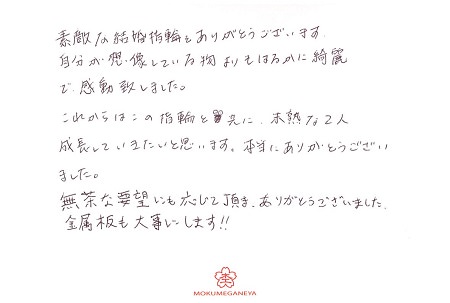 素敵な結婚指輪をありがとうございます.
自分が想像している物よりもはるかに綺麗
で、感動致しました。
これからはこの指輪と共に、未熟な2人
成長していきたいと思います。本当にありがとうござい
ました。
無茶な要望にも応じて頂き、ありがとうございました.
金属板も大事にします!!
MOKUMEGANEYA